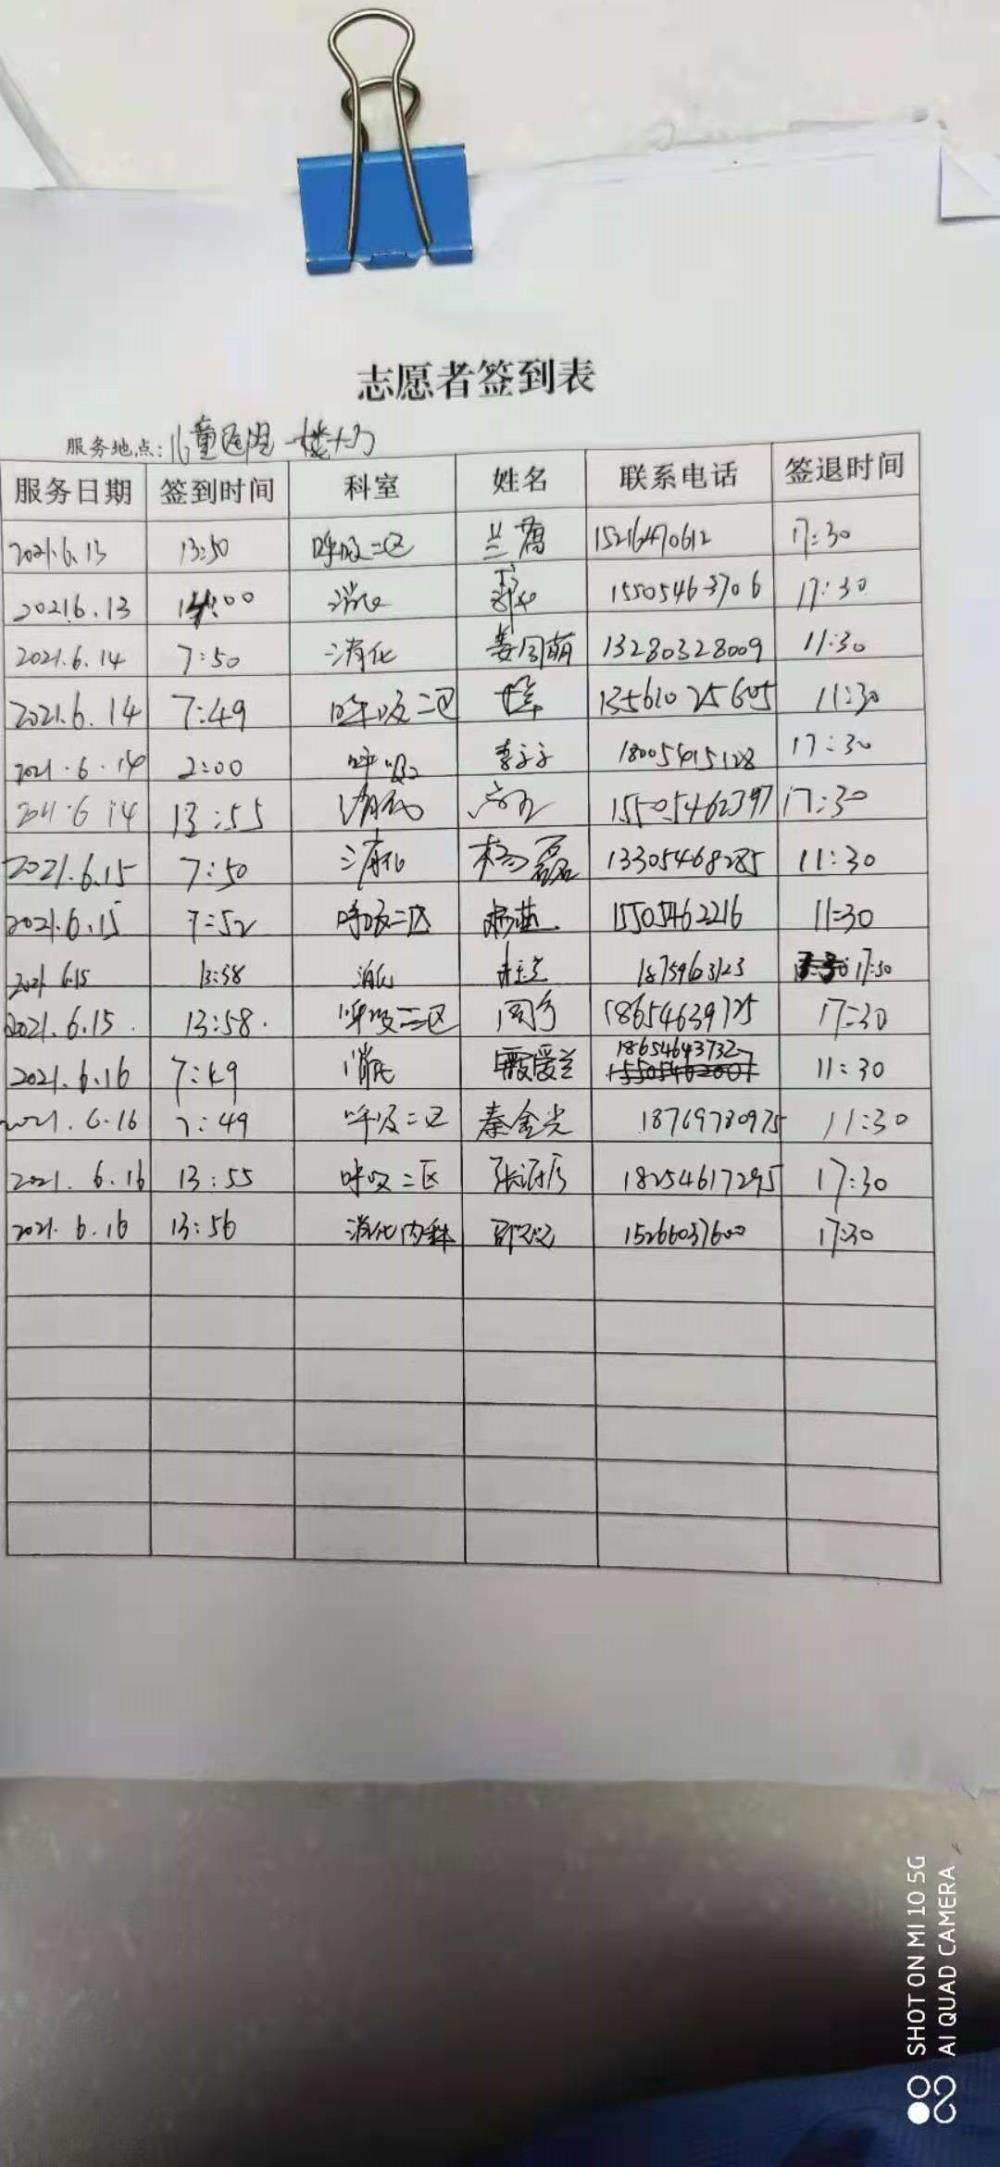 志愿者签到表
服务地点: 儿童医院 一楼大厅
服务日期 签到时间 科室 姓名 联系电话 签退时间
2021.6.13 13:50 呼吸二区 兰 15216470612 17:30
2021.6.13 14:00 消化 15505463706 17:30
2021.6.14 7:50 消化 姜闫萌 13280328009 11:30
2021.6.14 7:49 呼吸二区 13561025605 11:30
2021.6.14 2:00 呼吸 17:30
2021.6.14 13:55 消化 15505462397 17:30
2021.6.15 7:50 消化 杨磊 13305468285 11:30
2021.6.15 7:52 呼吸二区 15505462216 11:30
2021.6.15 13:58 消化 17:30
2021.6.15. 13:58. 呼吸二区 周宁 18654639725 17:30
2021.6.16 7:49 消化 爱兰 18654643732 11:30
2021.6.16 7:49 呼吸二区 秦金光 18769780975 11:30
2021.6.16 13:55 呼吸二区 张 18254617295 17:30
2021.6.16 13:56 消化内科 15266037600 17:30
SHOT ON MI 10 5G
AI QUAD CAMERA